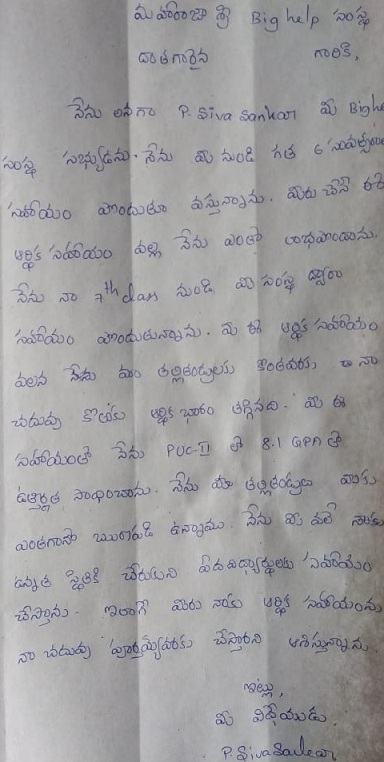 మహారాజ శ్రీ Big help సంస్థ
దాతగారైన గారికి,
నేను అనగా P. Siva Sankar మీ Bighe
సంస్థ సభ్యుడను. నేను మీ నుండి గత 6 సంవత్సరాల
సహాయం పొందుతూ వస్తున్నాను. మీరు చేసే ఈ
ఆర్థిక సహాయం వల్ల నేను ఎంతో లాభపొందాను.
నేను నా 7th class నుండి మీ సంస్థ ద్వారా
సహాయం పొందుతున్నాను. మీ ఈ ఆర్థిక సహాయం
వలన నేను మా తల్లితండ్రులకు కొంతవరకు నా
చదువు కొరకు ఆర్థిక భారం తగ్గినది. మీ ఈ
సహాయంతో నేను PUC-II లో 8.1 GPA తో
ఉత్తీర్ణత సాధించాను. నేను మా తల్లితండ్రులు మీకు
ఎంతగానో ఋణపడి ఉన్నాము. నేను మీ వలె
ఉన్నత స్థితికి చేరుకుని పేద విద్యార్థులకు సహాయం
చేస్తాను. ఇలాగే మీరు నాకు ఆర్థిక సహాయంను
నా చదువు పూర్తయ్యేవరకు చేస్తారని ఆశిస్తున్నాను.
ఇట్లు,
మీ విధేయుడు.
P. Siva Sankar